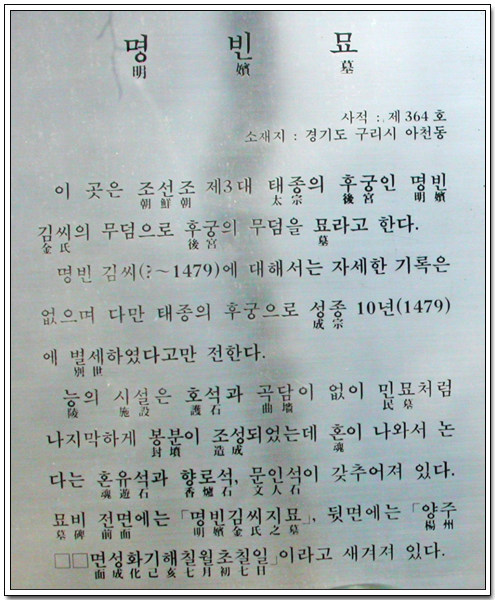 명 빈 묘
明 嬪 墓
사적 : 제 364 호
소재지 : 경기도 구리시 아천동
이 곳은 조선조 제3대 태종의 후궁인 명빈
朝鮮朝 太宗 後宮 明嬪
김씨의 무덤으로 후궁의 무덤을 묘라고 한다.
金氏 後宮 墓
명빈 김씨(?~1479)에 대해서는 자세한 기록은
없으며 다만 태종의 후궁으로 성종 10년(1479)
成宗
에 별세하였다고만 전한다.
別世
능의 시설은 호석과 곡담이 없이 민묘처럼
陵 施設 護石 曲墻 民墓
나지막하게 봉분이 조성되었는데 혼이 나와서 논
封墳 造成 魂
다는 혼유석과 향로석, 문인석이 갖추어져 있다.
魂遊石 香爐石 文人石
묘비 전면에는 「명빈김씨지묘」, 뒷면에는 「양주
墓碑 前面 明嬪金氏之墓 楊州
□□면성화기해칠월초칠일」이라고 새겨져 있다.
面成化己亥七月初七日